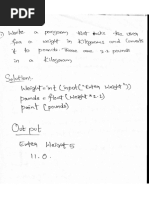 1) Write a program that asks the user
for a weight in kilograms and converts
it to pounds. There are 2.2 pounds
in a kilogram
Solution:
Weight = int (input("Enter Weight"))
pounds = float (Weight * 2.2)
print (pounds)
Output
Enter Weight 5
11.0